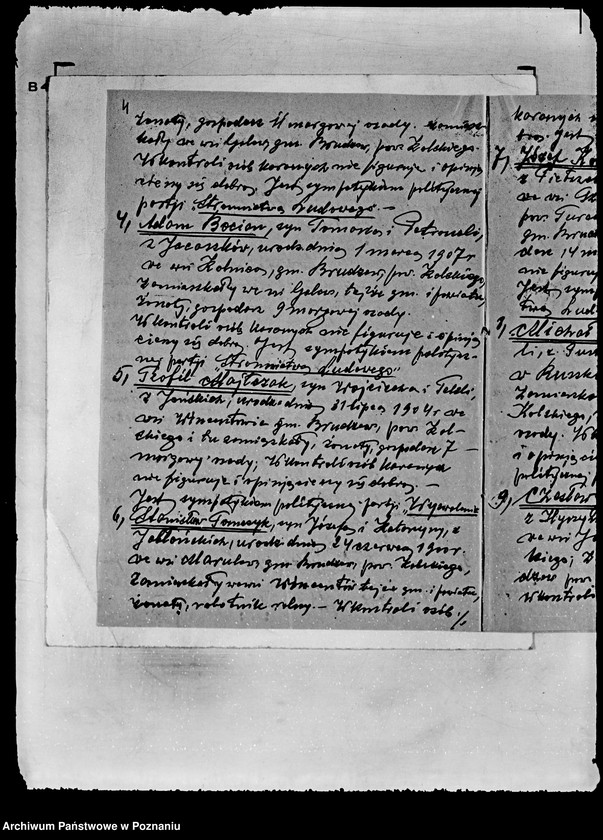 4
żonaty, gospodarz 11 morgowej osady. Zamiesz-
kały we wsi Galew, gm. Brudzew, pow. Kolskiego.
W kontroli osób karanych nie figuruje i opinją
cieszy się dobrą. Jest sympatykiem politycznej
partji "Stronnictwa Ludowego. —
4, Adam Bocian, syn Tomasza i Petroneli,
z Jacaszków, urodz. dnia 1 marca 1907 r.
we wsi Kolnica, gm. Brudzew, pow. Kolskiego,
zamieszkały we wsi Galew, tejże gm. i powiatu,
żonaty, gospodarz 9 morgowej osady.
W kontroli osób karanych nie figuruje i opinją
cieszy się dobrą. Jest sympatykiem politycz-
nej partji "Stronnictwa Ludowego"
5, Teofil Majtczak, syn Wojciecha i Tekli,
z Janickich, urodz. dnia 31 lipca 1904 r. we
wsi Wincentów gm. Brudzew, pow. Kol-
skiego i tu zamieszkały, żonaty, gospodarz 7 —
morgowej osady; W kontroli osób karanych
nie figuruje i opinją cieszy się dobrą. —
Jest sympatykiem politycznej partji "Wyzwolenie
6, Stanisław Tomczyk, syn Józefa i Katarzyny, z
Jabłońskich, urodz. dnia 24 czerwca r.
we wsi Marulew, gm. Brudzew, pow. Kolskiego,
zamieszkały we wsi Wincentów tejże gm. i powiatu,
żonaty, robotnik rolny. — W kontroli osób ./.
karanych
Jest
7, Józef
z
we wsi
pow. Turec
gm. Brud
dzew 14 m
nie figuruj
Jest symp
8, Michał
li, z
w
zamieszka
Kolskiego,
osady. W k
i opinją cie
politycznej
9, Czesław
z
we wsi
kiego; Z
dzew pow.
W kontroli
B
Archiwum Państwowe w Poznaniu